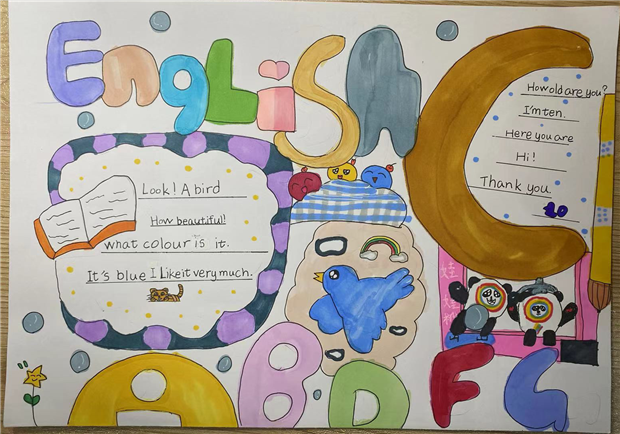 English
Look! A bird
How beautiful!
what colour is it.
It's blue I Like it very much.
How old are you?
I'm ten.
Here you are
Hi!
Thank you
A B D F G
C